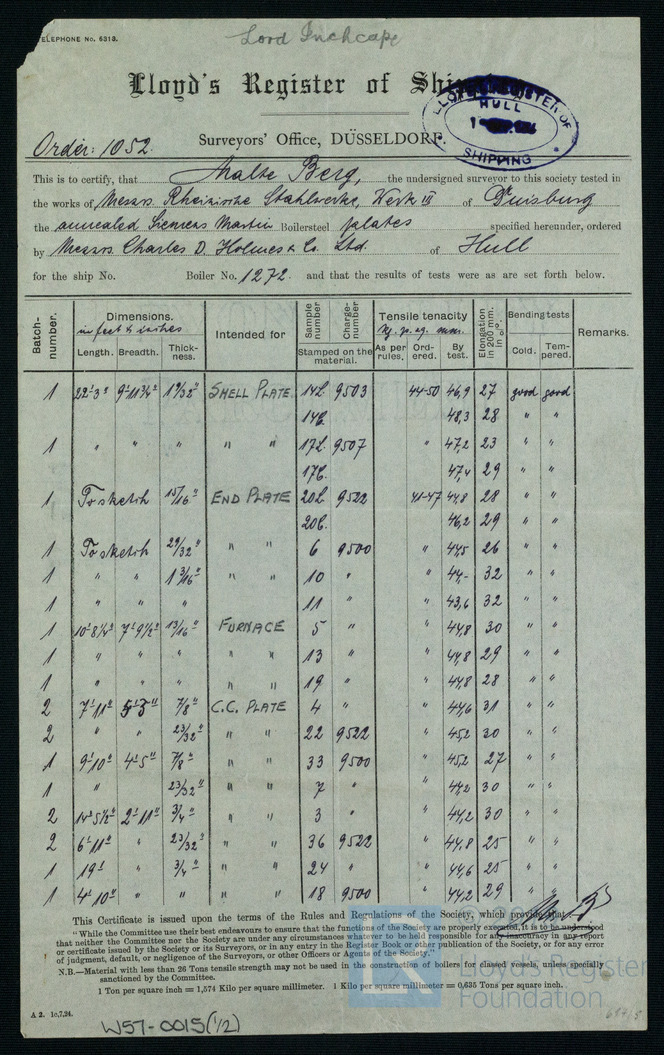 TELEPHONE No. 6313.
Lord Inchcape
Lloyd's Register of Shipping
LLOYD'S REGISTER OF
HULL
SHIPPING
Surveyors' Office, DÜSSELDORF.
Order: 1052.
This is to certify, that Malte Berg, the undersigned surveyor to this society tested in
the works of Messrs. Rheinische Stahlwerke, Werk III of Duisburg
the annealed Siemens Martin Boilersteel plates specified hereunder, ordered
by Messrs. Charles D. Holmes & Co. Ltd. of Hull
for the ship No. Boiler No. 1272. and that the results of tests were as are set forth below.
Batch-number. Dimensions. in feet & inches Length. Breadth. Thick-ness. Intended for Sample number Charge-number Stamped on the material. Tensile tenacity Kg. p. sq. mm. As per rules. Ord-ered. By test. Elongation in 200 mm. in %. Bending tests Cold. Tem-pered. Remarks.
1 22'3" 9'11¾" 19/32" SHELL PLATE 14L 9503 44-50 46,9 27 good good
14C. 48,3 28 " "
1 " " " " " 17L. 9507 " 47,2 23 " "
17C. 47,4 29 " "
1 To sketch 15/16" END PLATE 20L 9522 41-47 44,8 28 " "
20C. 46,2 29 " "
1 To sketch 29/32" " " 6 9500 " 44,5 26 " "
1 " " 1 3/16" " " 10 " " 44,- 32 " "
1 " " " 11 " " 43,6 32 " "
1 10'8¼" 7'9½" 13/16" FURNACE 5 " " 44,8 30 " "
1 " " " " " 13 " " 44,8 29 " "
1 " " " " " 19 " " 44,8 28 " "
2 7'11" 5'3" 7/8" C.C. PLATE 4 " " 44,6 31 " "
2 " " 23/32" " " 22 9522 " 45,2 30 " "
1 9'10" 4'5" 7/8" " " 33 9500 " 45,2 27 " "
1 " " 23/32" " " 7 " " 44,2 30 " "
2 14'5½" 2'11" 3/4" " " 3 " " 44,2 30 " "
2 6'11" " 23/32" " " 36 9522 " 44,8 25 " "
1 19' " 3/4" " " 24 " " 44,6 25 " "
1 4'10" " " " " 18 9500 " 44,2 29 " "
This Certificate is issued upon the terms of the Rules and Regulations of the Society, which provide that
"While the Committee use their best endeavours to ensure that the functions of the Society are properly executed, it is to be understood
that neither the Committee nor the Society are under any circumstances whatever to be held responsible for any inaccuracy in any report
or certificate issued by the Society or its Surveyors, or in any entry in the Register Book or other publication of the Society, or for any error
of judgment, default, or negligence of the Surveyors, or other Officers or Agents of the Society."
N.B.—Material with less than 26 Tons tensile strength may not be used in the construction of boilers for classed vessels, unless specially
sanctioned by the Committee.
1 Ton per square inch = 1,574 Kilo per square millimetre. 1 Kilo per square millimetre = 0,635 Tons per square inch.
Lloyd's Register
Foundation
A 2. 1c,7,24.
W57-0015(1/2)